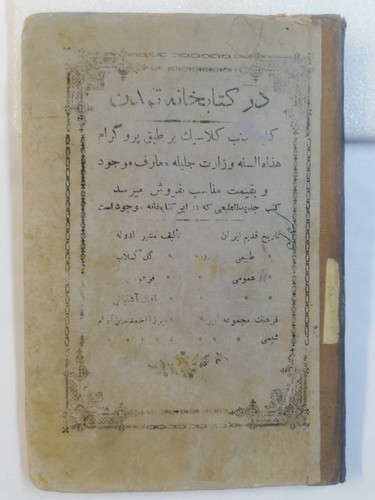 در کتابخانه تمدن
کتب کلاسیک بر طبق پروگرام
هذه السنه وزارت جلیله معارف موجود
و بقیمت مناسب بفروش میرسد
کتب جدیدالطبعی که در این کتابخانه موجود است
تاریخ قدیم ایران تألیف مشیر الدوله
" طبیعی " گل گلاب
" عمومی "
اقبال آشتیانی
فرهنگ مجموعه